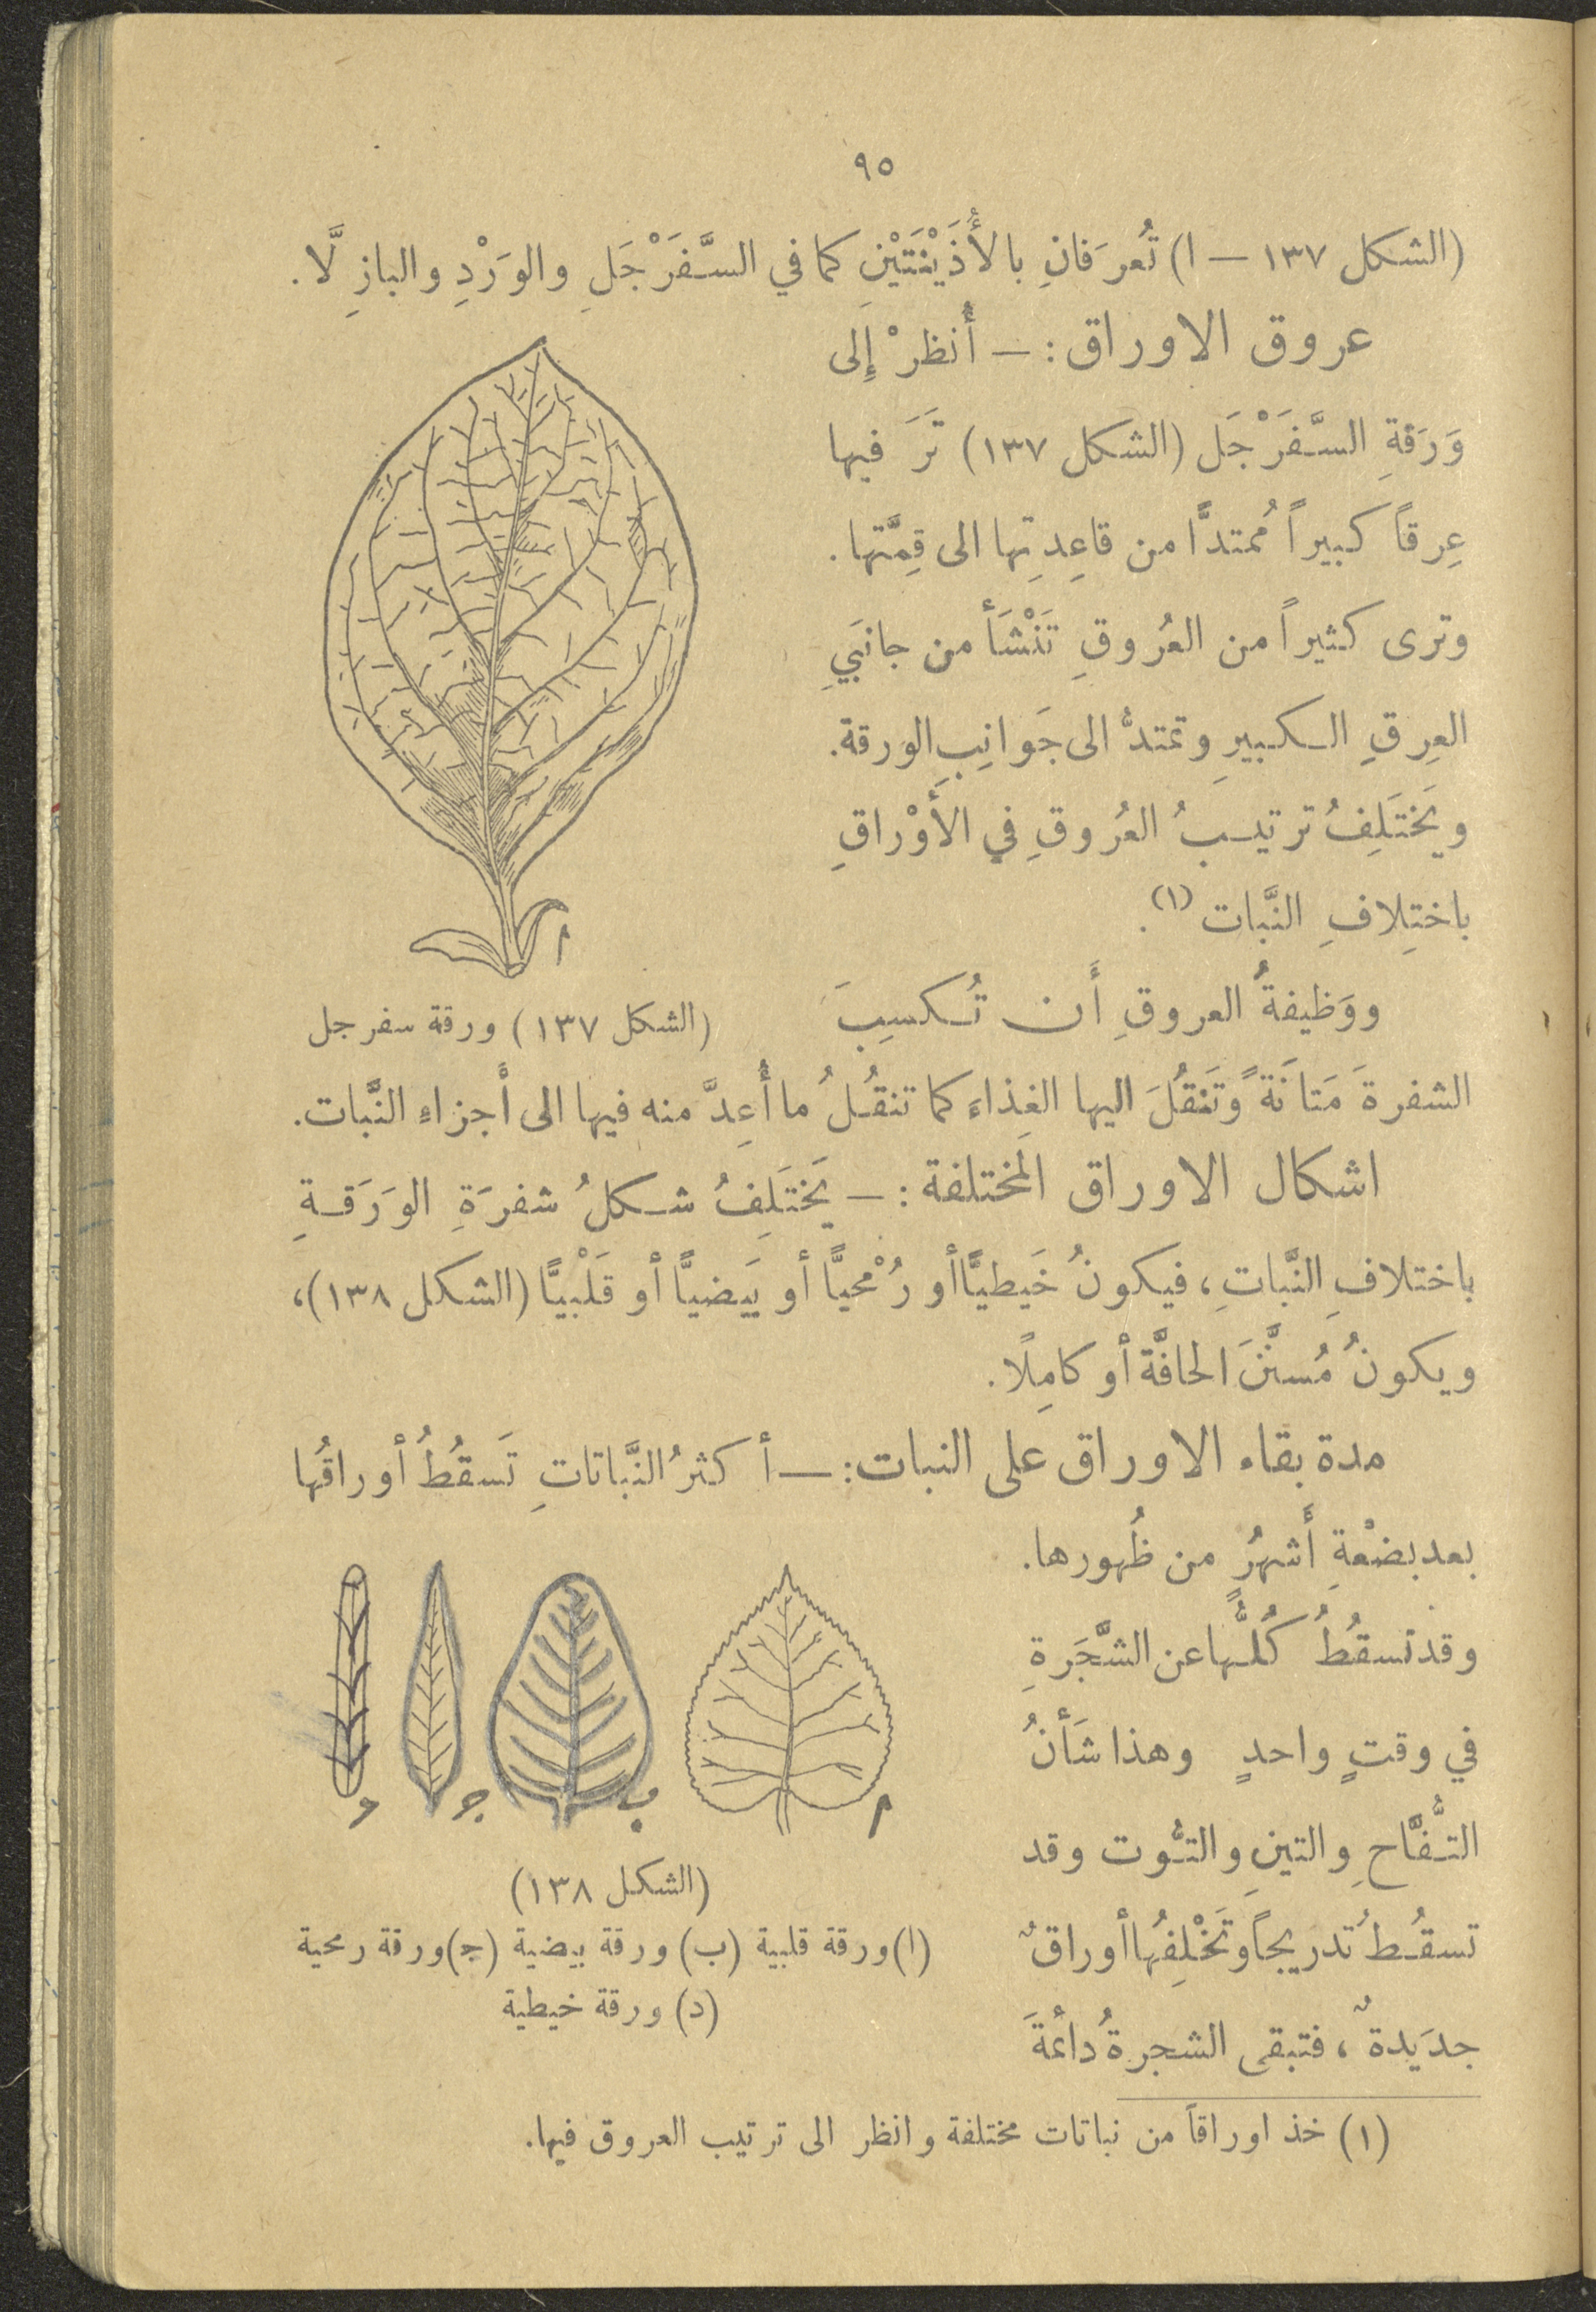 ٩٥
(الشكل ١٣٧ — ا) تُعرَفانِ بالأُذَيْنَتَيْنِ كما في السَّفَرْجَلِ والوَرْدِ والبازِلَّا.
عروق الاوراق : — أُنظرْ إِلى
وَرَقةِ السَّفَرْجَل (الشكل ١٣٧) تَرَ فيها
عِرقاً كبيراً مُمتدًّا من قاعِدتِها الى قِمَّتها.
وترى كثيراً من العُروقِ تَنْشَأ من جانبَيِ
العِرقِ الكبيرِ وتمتدُّ الى جَوانِبِ الورقة.
ويَختَلِفُ ترتيبُ العُروقِ في الأَوْراقِ
باختِلافِ النَّبات (١).
ووَظيفةُ العروقِ أَن تُكسِبَ
(الشكل ١٣٧) ورقة سفرجل
الشفرةَ مَتانَةً وتَنقُلَ اليها الغِذاءَ كما تنقُلُ ما أُعِدَّ منه فيها الى أَجزاءِ النَّبات.
اشكال الاوراق المختلفة : — يَختَلِفُ شكلُ شفرَةِ الوَرَقةِ
باختلافِ النَّباتِ، فيكونُ خَيطيًّا أو رُمْحيًّا أو بَيضيًّا أو قَلْبيًّا (الشكل ١٣٨)،
ويكونُ مُسنَّنَ الحافَّة أو كامِلًا.
مدة بقاء الاوراق على النبات: — أكثرُ النَّباتاتِ تَسقُطُ أوراقُها
بعد بضْعةِ أَشهُرٍ من ظُهورها.
وقد تسقُطُ كُلُّها عن الشَّجَرةِ
في وقتٍ واحدٍ وهذا شَأنُ
التُّفَّاحِ والتينِ والتُّوت وقد
تسقُطُ تدريجاً وتَخْلِفُها أوراقٌ
جدَيدةٌ، فتبقى الشجرةُ دائمةَ
ا
ب
ج
د
(الشكل ١٣٨)
(ا) ورقة قلبية (ب) ورقة بيضية (ج) ورقة رمحية
(د) ورقة خيطية
(١) خذ اوراقاً من نباتات مختلفة وانظر الى ترتيب العروق فيها.